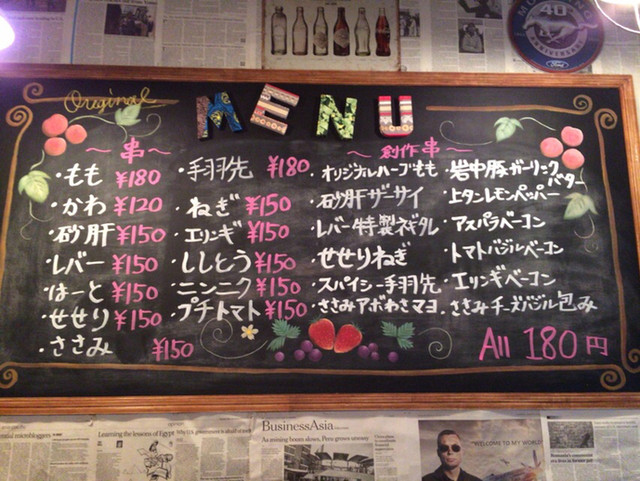 MUSTANG
40
ANNIVERSARY
Ford
Original
MENU
〜串〜
・もも ¥180
・かわ ¥120
・砂肝 ¥150
・レバー ¥150
・はーと ¥150
・せせり ¥150
・ささみ ¥150
・手羽先 ¥180
・ねぎ ¥150
・エリンギ ¥150
・ししとう ¥150
・ニンニク ¥150
・プチトマト ¥150
〜創作串〜
・オリジナルハーブもも
・砂肝ザーサイ
・レバー特製ネギタレ
・せせりねぎ
・スパイシー手羽先
・ささみアボわさマヨ
・岩中豚ガーリックバター
・上タンレモンペッパー
・アスパラベーコン
・トマトバジルベーコン
・エリンギベーコン
・ささみチーズバジル包み
All 180円
Learning the lessons of Egypt
BusinessAsia
As mining boom slows, Peru grows uneasy
"WELCOME TO MY WORLD"